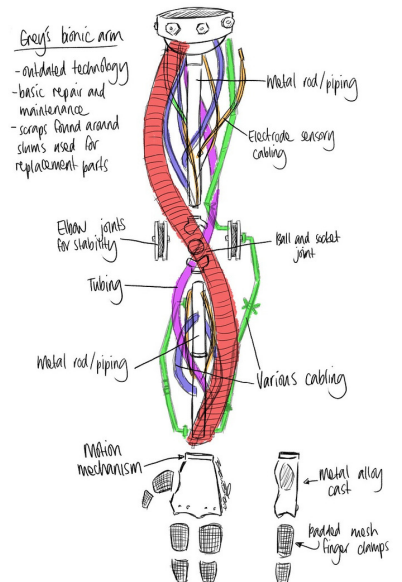 Grey's bionic arm
- outdated technology
- basic repair and
maintenance
- scraps found around
slums used for
replacement parts
Metal rod/piping
Electrode sensory
cabling
Elbow joints
for stability
Ball and socket
joint
Tubing
Metal rod/piping
Various cabling
Motion
mechanism
Metal alloy
cast
padded mesh
finger clamps